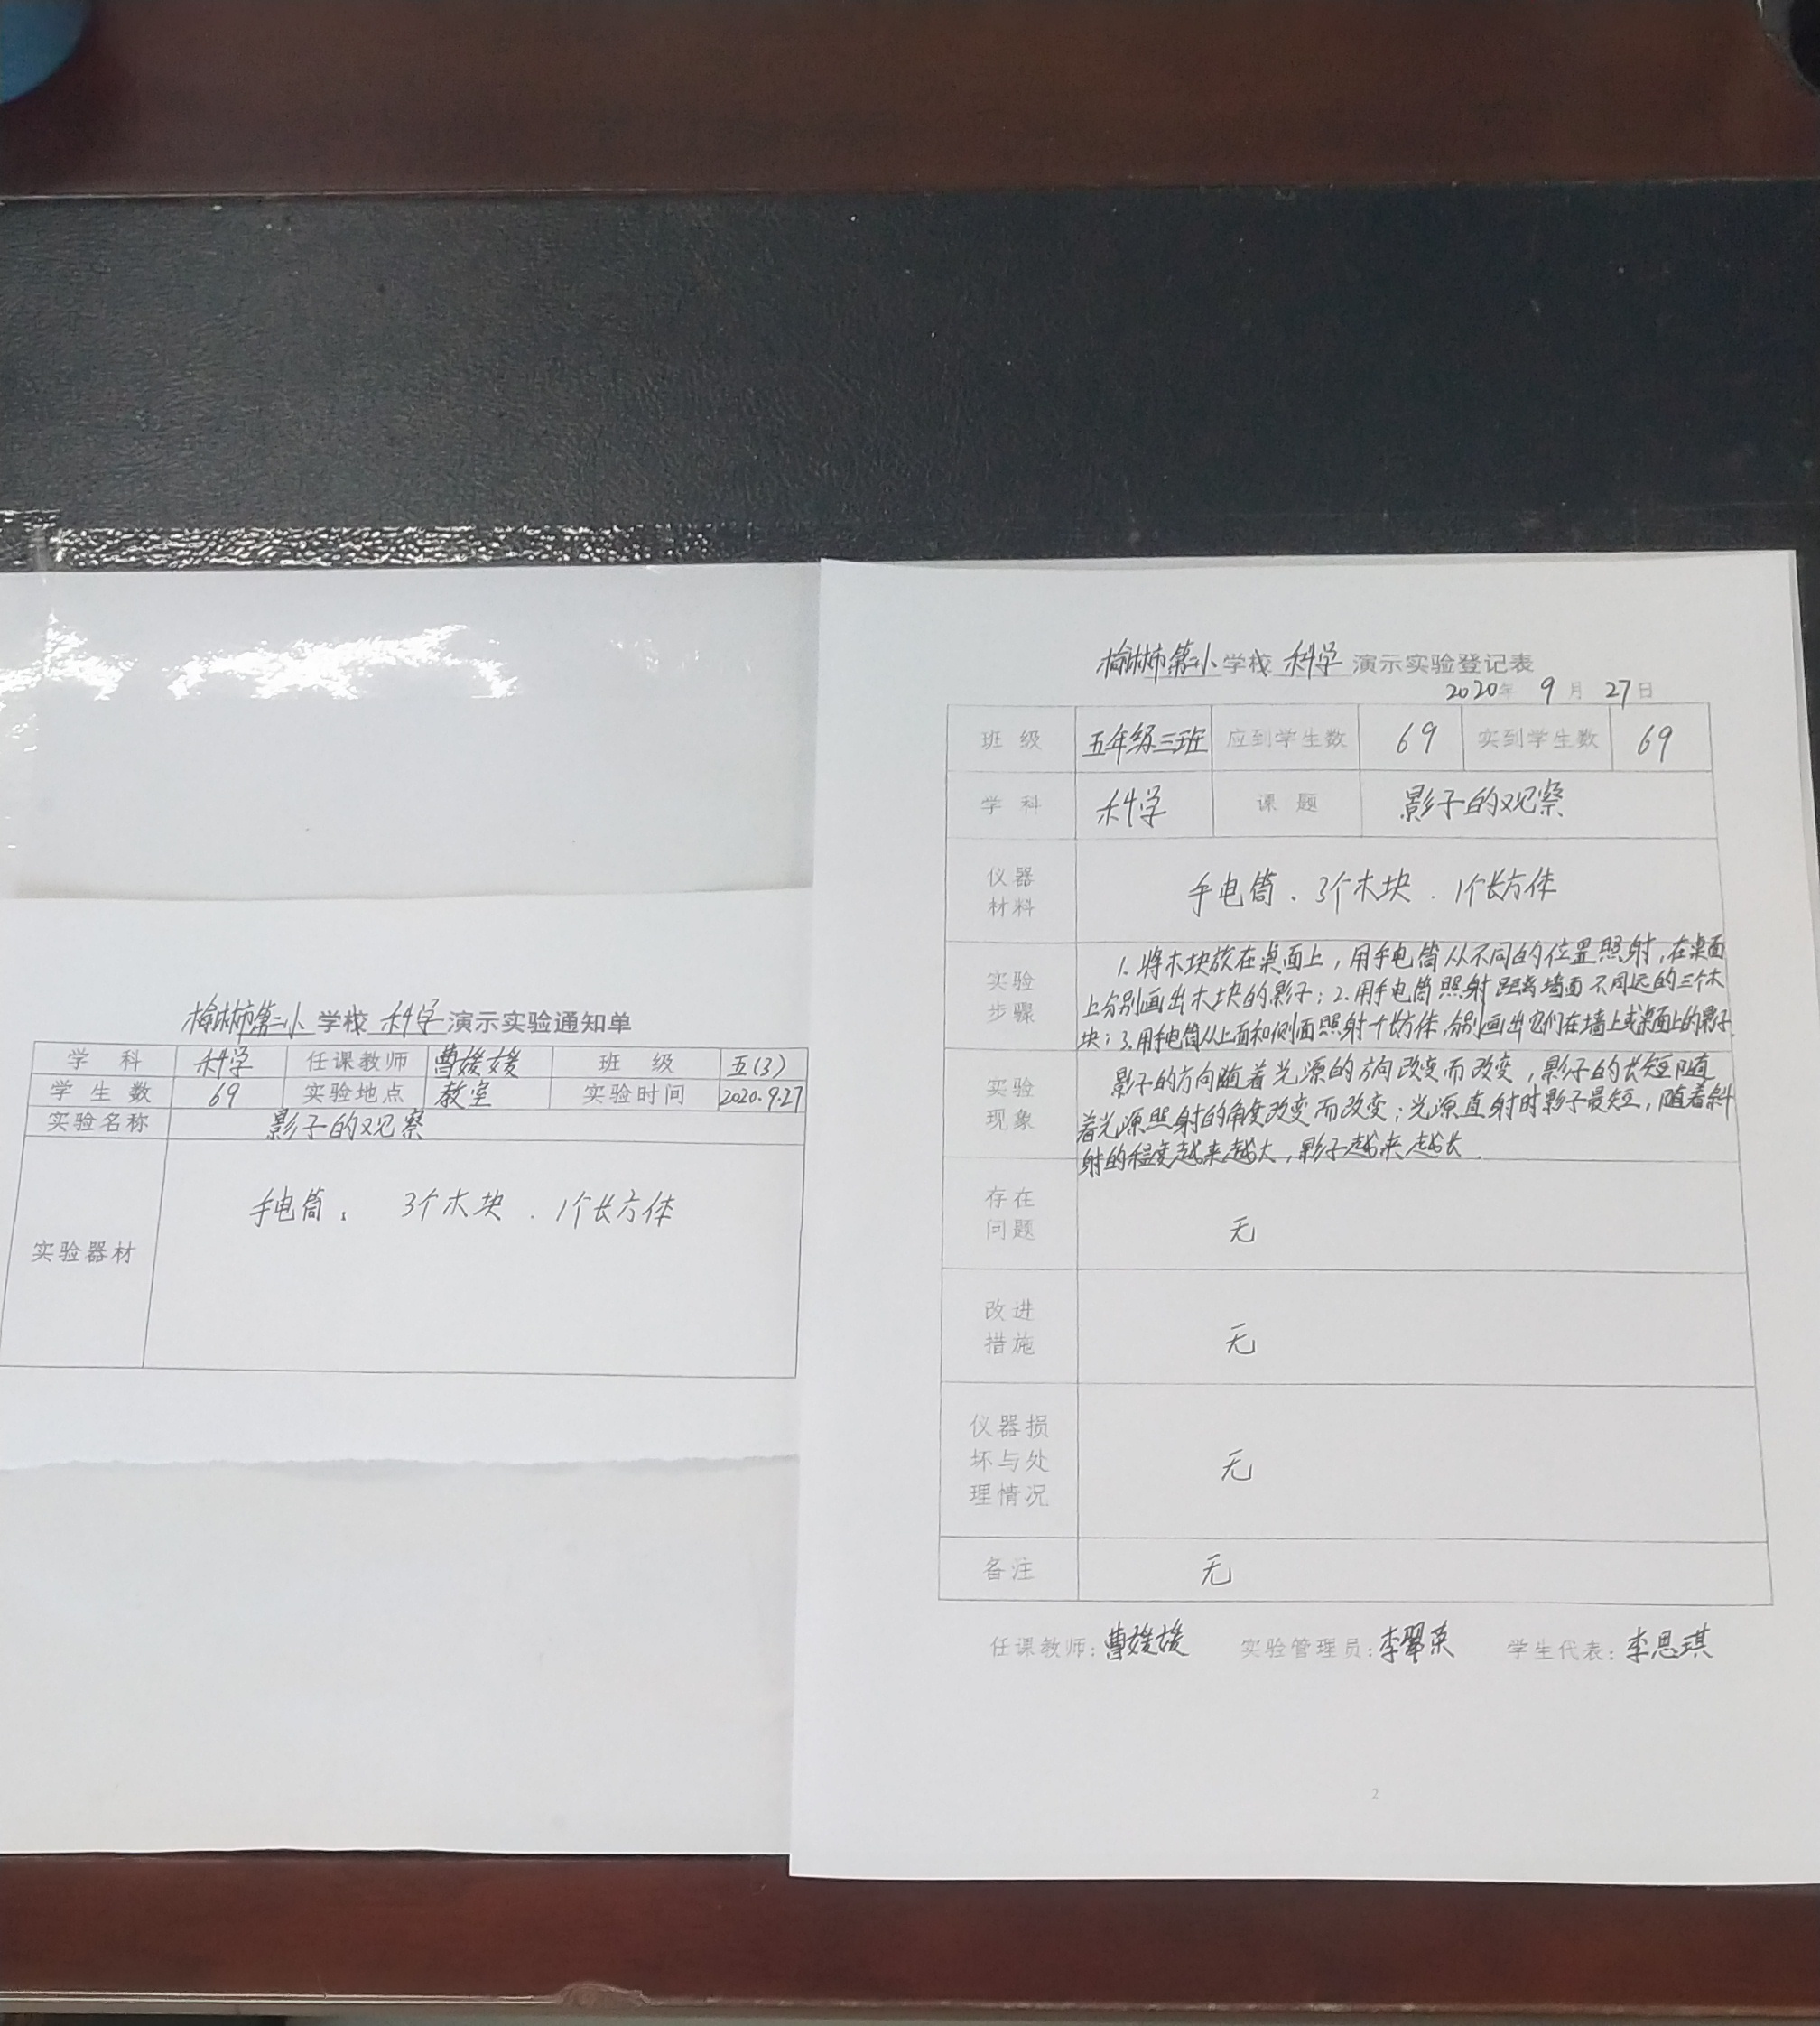 榆林市第二小学校 科学 演示实验通知单
学 科 科学 任课教师 曹媛媛 班 级 五(3)
学 生 数 69 实验地点 教室 实验时间 2020.9.27
实验名称 影子的观察
实验器材 手电筒、 3个木块 . 1个长方体
榆林市第二小学校 科学 演示实验登记表
2020年 9 月 27日
班 级 五年级三班 应到学生数 69 实到学生数 69
学 科 科学 课 题 影子的观察
仪器
材料
手电筒 、3个木块 . 1个长方体
实验
步骤
1. 将木块放在桌面上，用手电筒从不同的位置照射，在桌面
上分别画出木块的影子；2.用手电筒照射距离墙面不同远的三个木
块；3.用手电筒从上面和侧面照射个长方体，分别画出它们在墙上或桌面上的影子.
实验
现象
影子的方向随着光源的方向改变而改变，影子的长短随
着光源照射的角度改变而改变；光源直射时影子最短，随着斜
射的程度越来越大，影子越来越长 .
存在
问题
无
改进
措施
无
仪器损
坏与处
理情况
无
备注 无
任课教师：曹媛媛 实验管理员：李翠荣 学生代表：李思琪
2